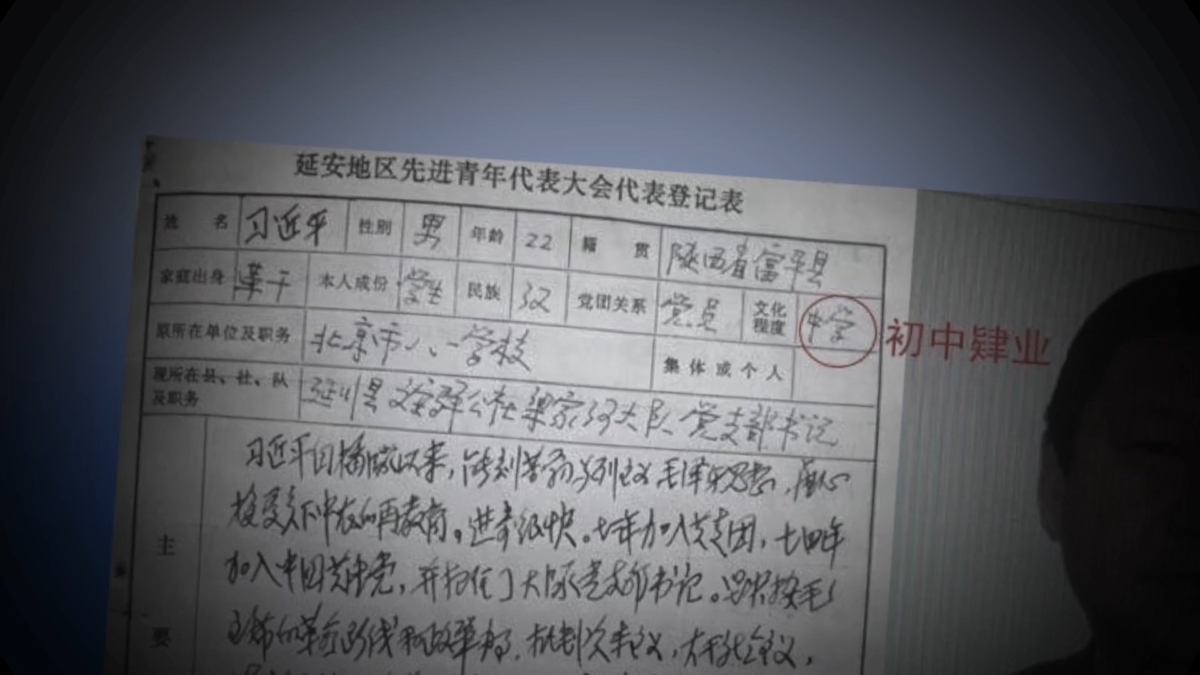 延安地区先进青年代表大会代表登记表
姓 名 习近平 性别 男 年龄 22 籍 贯 陕西省富平县
家庭出身 革干 本人成份 学生 民族 汉 党团关系 党员 文化程度 中学 初中肄业
原所在单位及职务 北京市八一学校 集体或个人
现所在县、社、队及职务 延川县文安驿公社梁家河大队 党支部书记
主
要
习近平同插队以来，能刻苦 马列主义毛泽东思想，虚心
接受 的再教育。进步很快。七 年加入共青团，七四年
加入中国共产党，并担任了大队党支部书记。 毛
主席的革命路线和政策办，批判资本主义，大干社会主义，